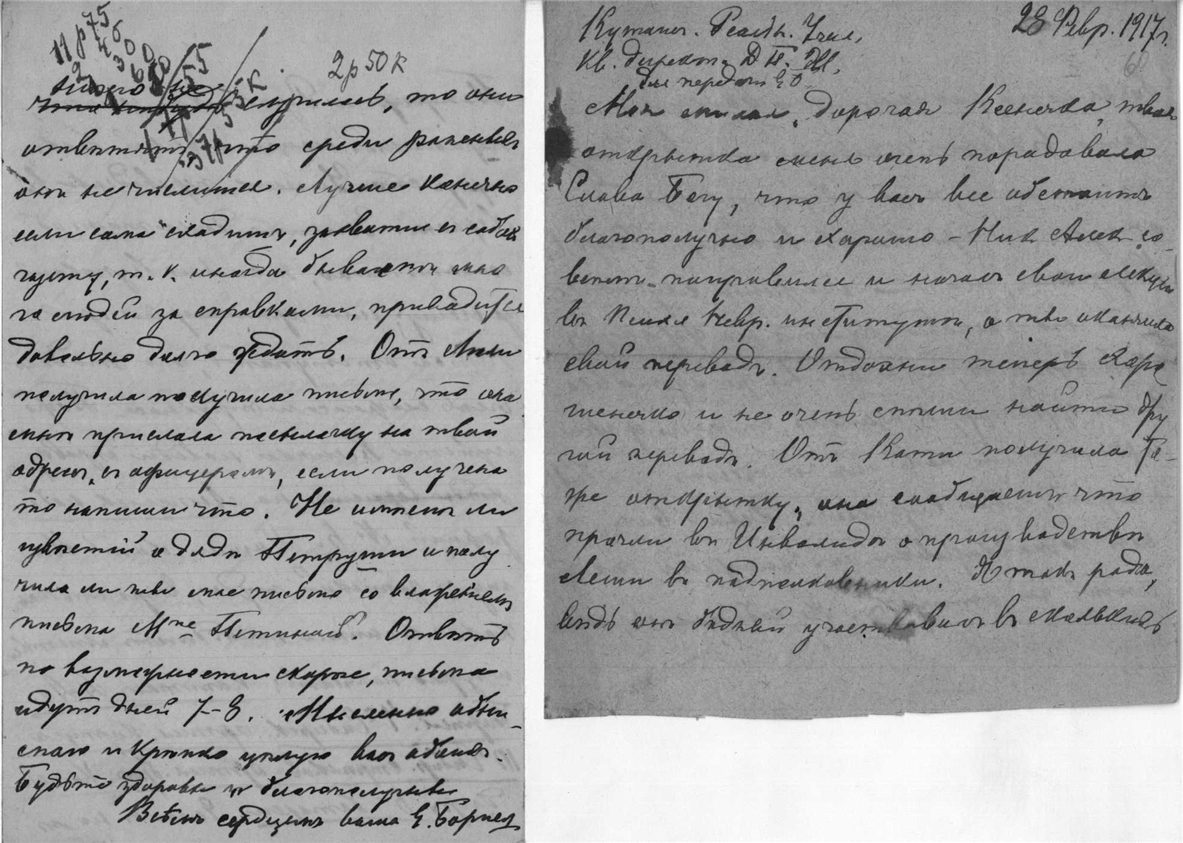 11 р 75
2 р 50 к
случилось, то они
ответятъ, что среди раненыхъ
они не числится. Лучше конечно
если сама сходишь, захвати съ собой
газету, т. к. иногда бываетъ мно
го людей за справками, приходится
довольно долго ждать. Отъ
получила получила письмо, что она
мнѣ прислала посылочку на твой
адресъ, съ офицеромъ, если получена
то напиши что. Не имѣешь ли
извѣстій о дядѣ Петруши и полу
чила ли ты мое письмо со вложеніемъ
письма Mme Петиной? Отвѣть
по возможности скорѣе, письма
идутъ дней 7-8. Мысленно обни-
маю и крѣпко цѣлую васъ обоихъ.
Будьте здоровы и благополучны
Всѣмъ сердцемъ ваша Е.
28 Февр. 1917 г.
Кутаис. Реальн. Учил.
Кв. директ.
для передачи Е. Б.
Моя милая, дорогая Ксенечка, твоя
открытка меня очень порадовала
Слава Богу, что у васъ все обстоитъ
благополучно и хорошо - Ник. Алек. со-
всѣмъ поправился и началъ свои лекціи
въ Психо Невр. институтѣ, а ты окончила
свой переводъ. Отдохни теперь хоро
шенько и не очень спѣши найти дру
гой переводъ. Отъ Кати получила то-
же открытку, она сообщаетъ что
прочли въ Инвалидѣ о производствѣ
Леши въ подполковники. Я такъ рада,
вѣдь онъ бѣдный участвовалъ въ сколькихъ